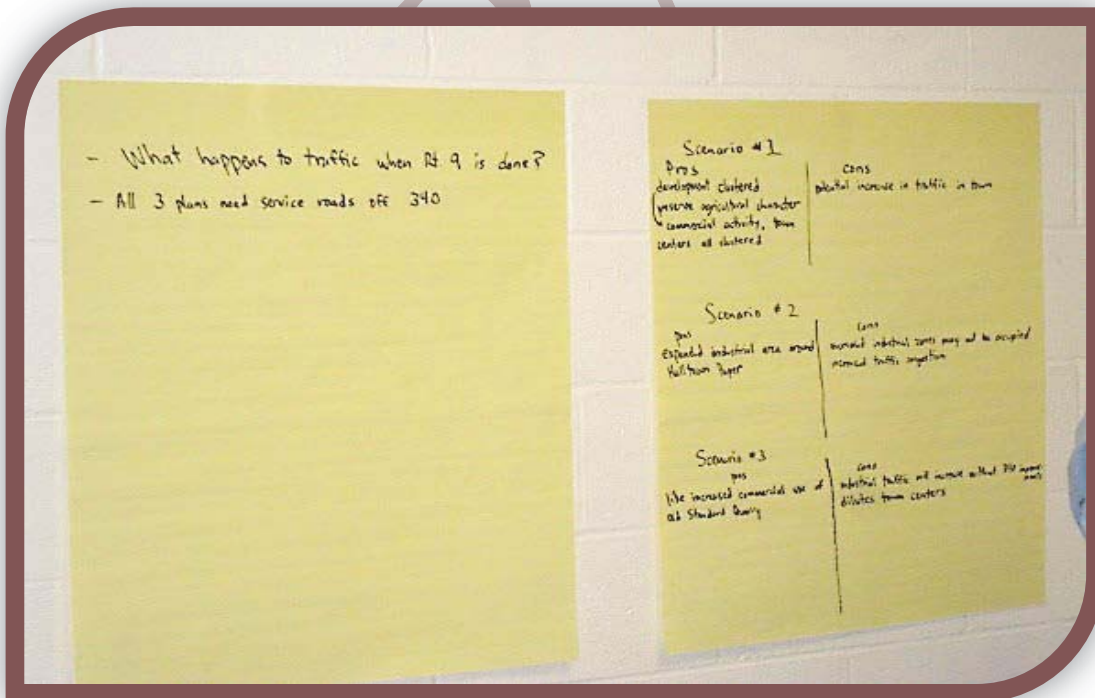 - What happens to traffic when Rt 9 is done?
- All 3 plans need service roads off 340
Scenario #1
Pros
development clustered
preserve agricultural character
commercial activity, town
centers all clustered
cons
potential increase in traffic in town
Scenario #2
pros
Expanded industrial area around
Paper
cons
increased industrial zones may not be occupied
increased traffic congestion
Scenario #3
pros
like increased commercial use of
Old Standard Quarry
cons
industrial traffic will increase without 340
dilutes town centers